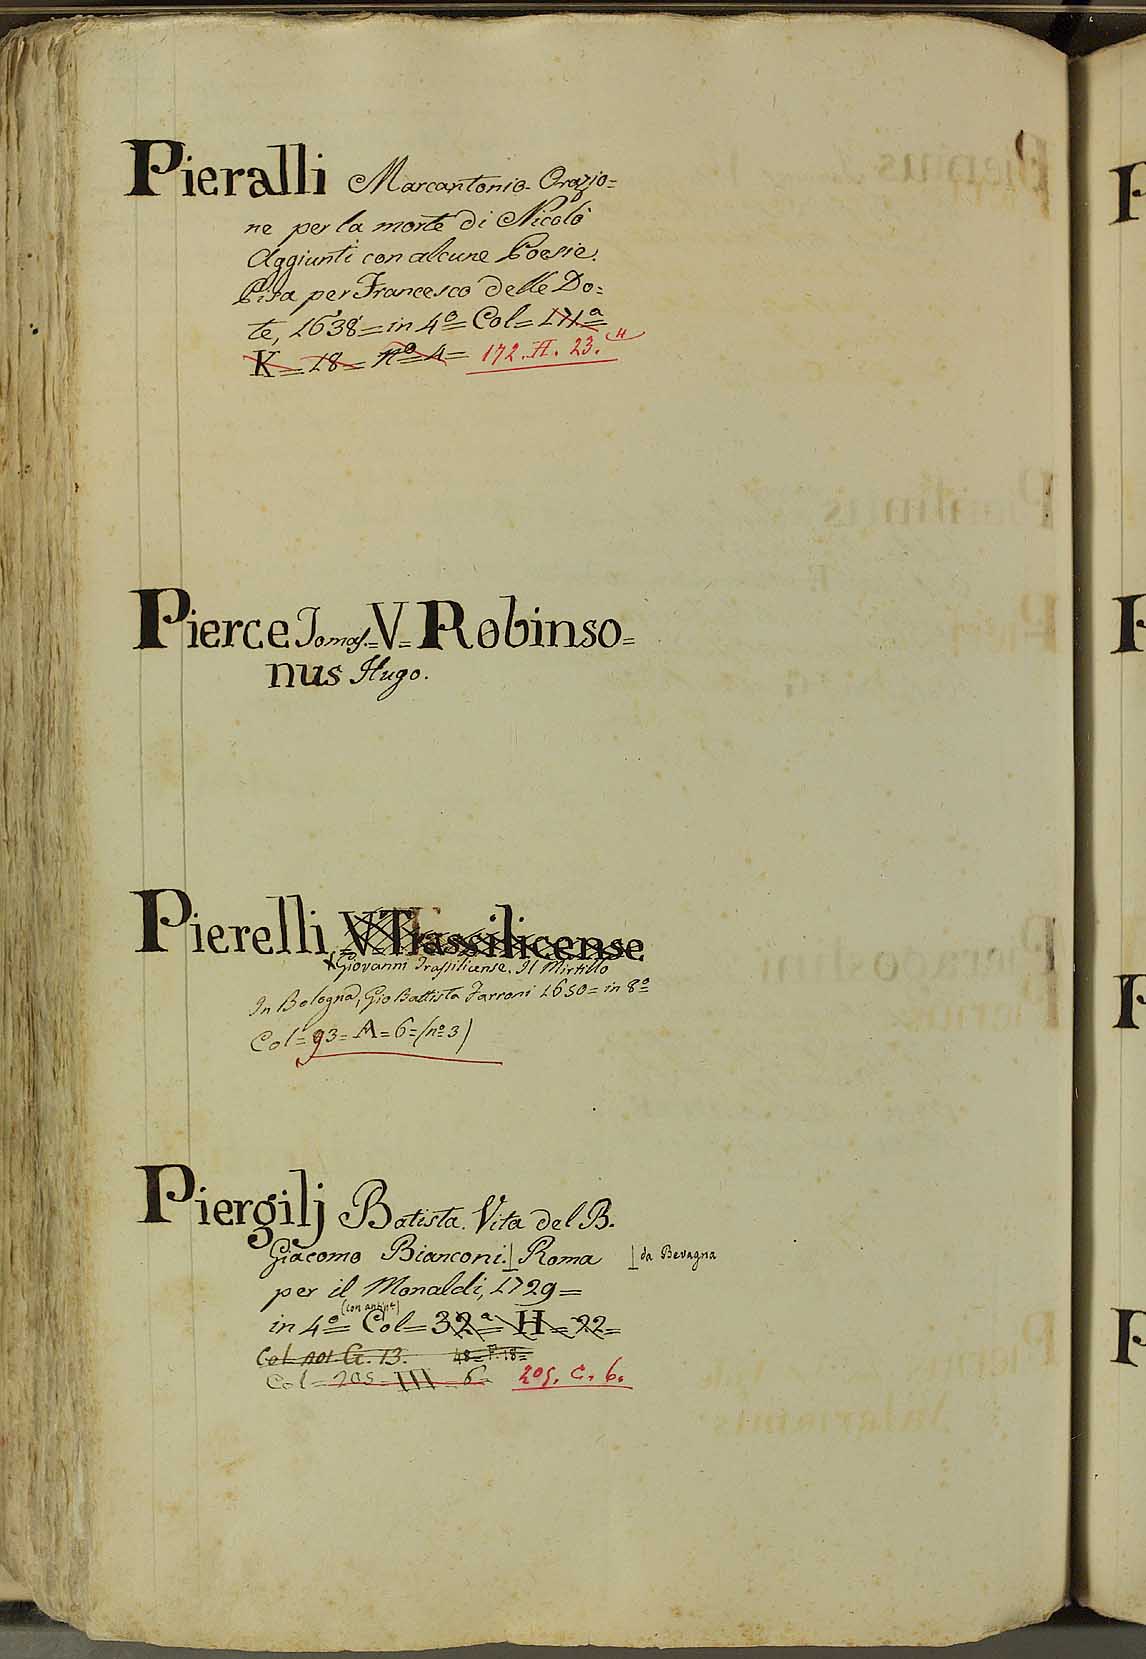 Pieralli Marcantonio. Orazio=
ne per la morte di Nicolò
Aggiunti con alcune Poesie.
Pisa per Francesco delle Do=
te, 1638 = in 4º = Col = 171ª
K = 18 = nº 4 = 172. H. 23.
Pierce Tomas. = V = Robinso=
nus Hugo.
Pierelli V Trassilicense
Giovanni Trassilicense. Il Mirtillo
In Bologna, Gio Battista Farroni 1650 = in 8º
Col = 93 = A = 6 = (nº 3)
Piergilj Batista. Vita del B.
Giacomo Bianconi. Roma da Bevagna
per il Monaldi, 1729 =
(con antip.)
in 4º = Col = 32ª = H = 22 =
Col. 101. G. 13. 48 = F. 18 =
Col = 205 = 6. 205. C. 6.